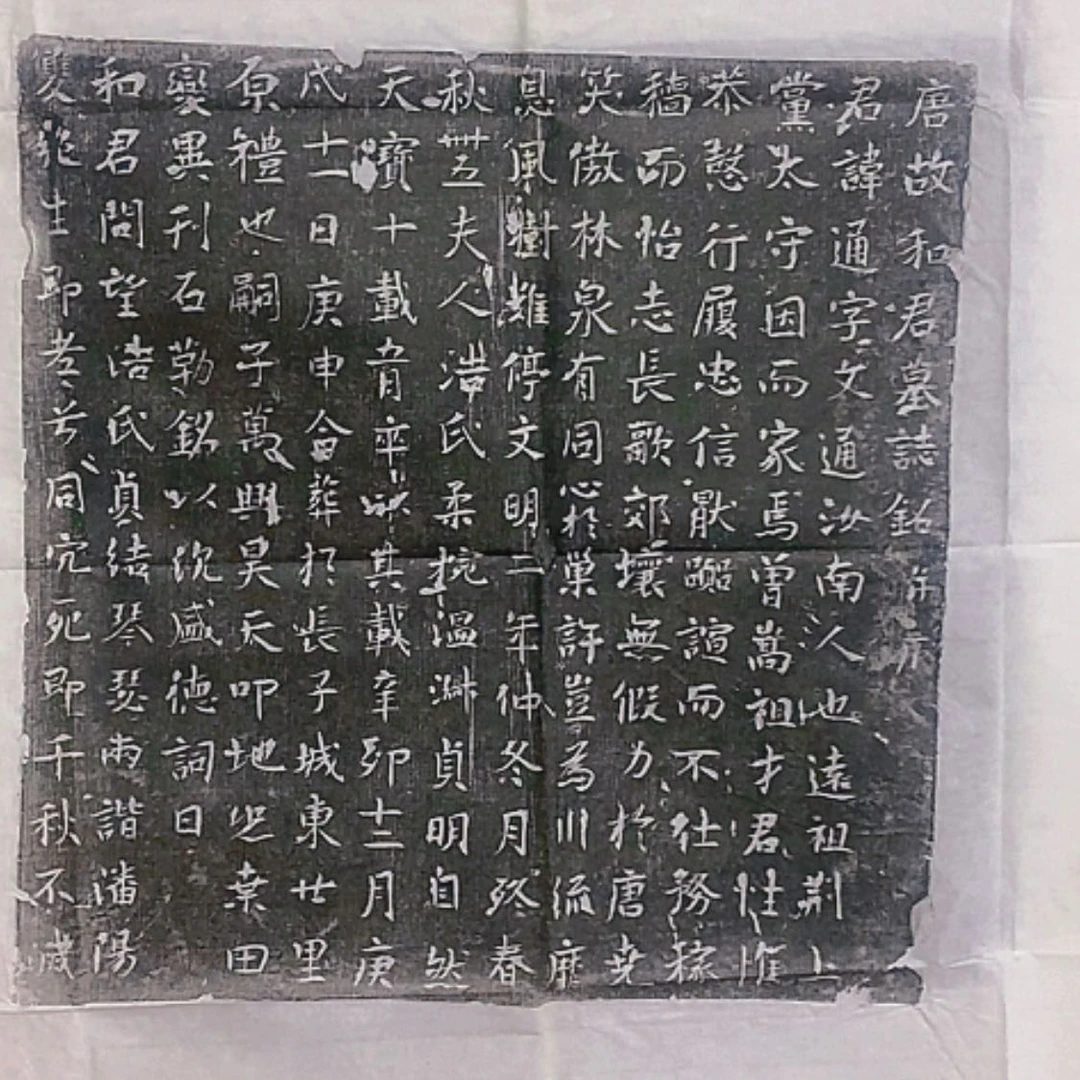 唐故和君墓誌銘并序
君諱通字文通汝南人也遠祖荆上
黨太守因而家焉曾嵩祖才君性惟
恭慤行履忠信猒躁諠而不仕務稼
穡而怡志長歌郊壤無假力於唐堯
笑傲林泉有同心於巢許豈為川流靡
息風樹難停文明二年仲冬月終春
秋卌五夫人浩氏柔婉温淋貞明自然
天寶十載育卒以其載辛卯十二月庚
戌十一日庚申合葬於長子城東廿里
原禮也嗣子萬興昊天叩地恐桒田
變異刊石勒銘以紀盛德詞曰
和君問望浩氏貞結琴瑟雨諧潘陽
雙美生即老兮同穴死即千秋不滅